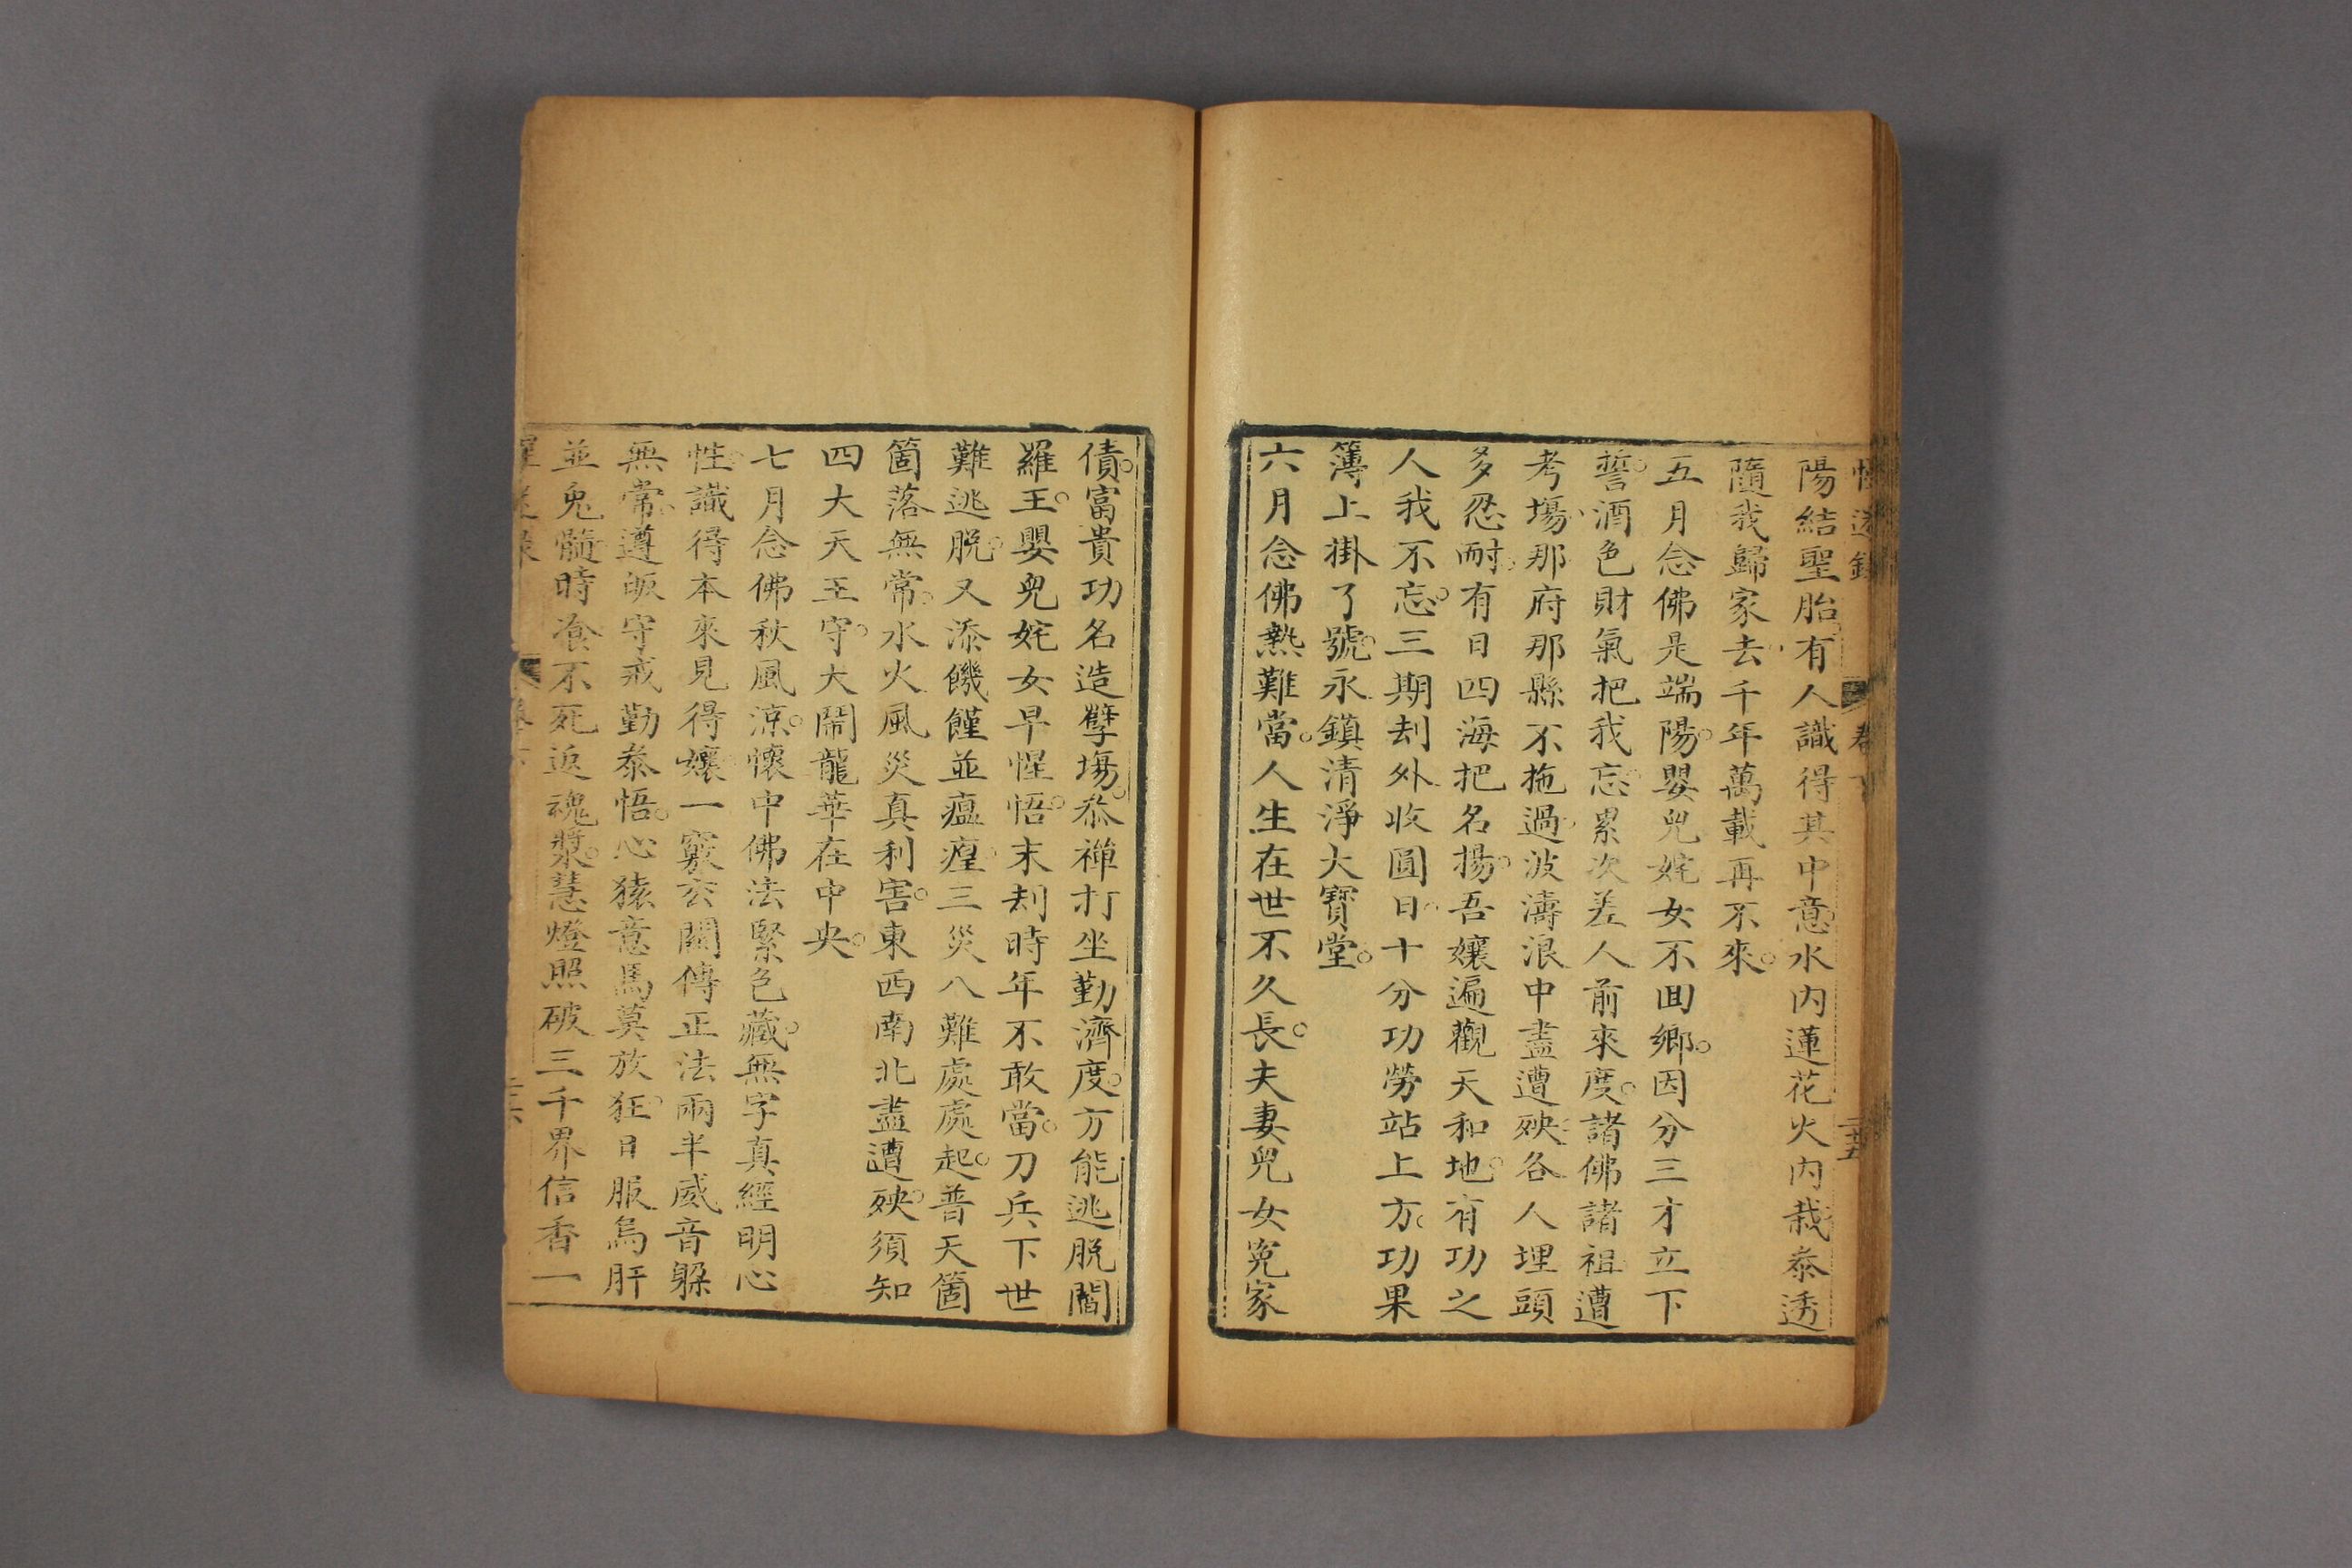 陽結聖胎有人識得其中意水内蓮花火内栽叅透
隨我歸家去千年萬載再不來。
五月念佛是端陽。嬰兒姹女不囬鄉。因分三才立下
誓。酒色財氣把我忘。累次差人前來度。諸佛諸祖遭
考塲那府那縣不拖過波濤浪中盡遭殃各人埋頭
多忍耐有日四海把名揚。吾孃遍觀天和地。有功之
人我不忘。三期刦外收圓日十分功勞站上方。功果
簿上掛了號。永鎮清淨大寶堂。
六月念佛熱難當。人生在世不久長。夫妻兒女寃家
債。富貴功名造孽塲。叅禪打坐勤濟度。方能逃脱閻
羅王。嬰兒姹女早惺悟。末刦時年不敢當。刀兵下世
難逃脱。又添饑饉並瘟瘟三災八難處處起。普天箇
箇落無常。水火風災真利害。東西南北盡遭殃。須知
四大天王守。大鬧龍華在中央。
七月念佛秋風涼。懷中佛法緊色藏。無字真經明心
性。識得本來見得孃一竅玄關傳正法兩半威音躲
無常遵皈守戒勤叅悟。心猿意馬莫放狂。日服烏肝
並兔髓時飡不死返魂漿。慧燈照破三千界信香一